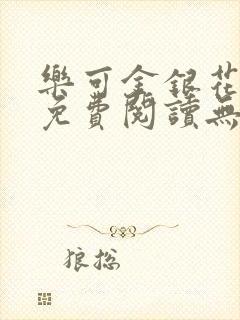 樂可金銀花
免費閱讀無
狼悐